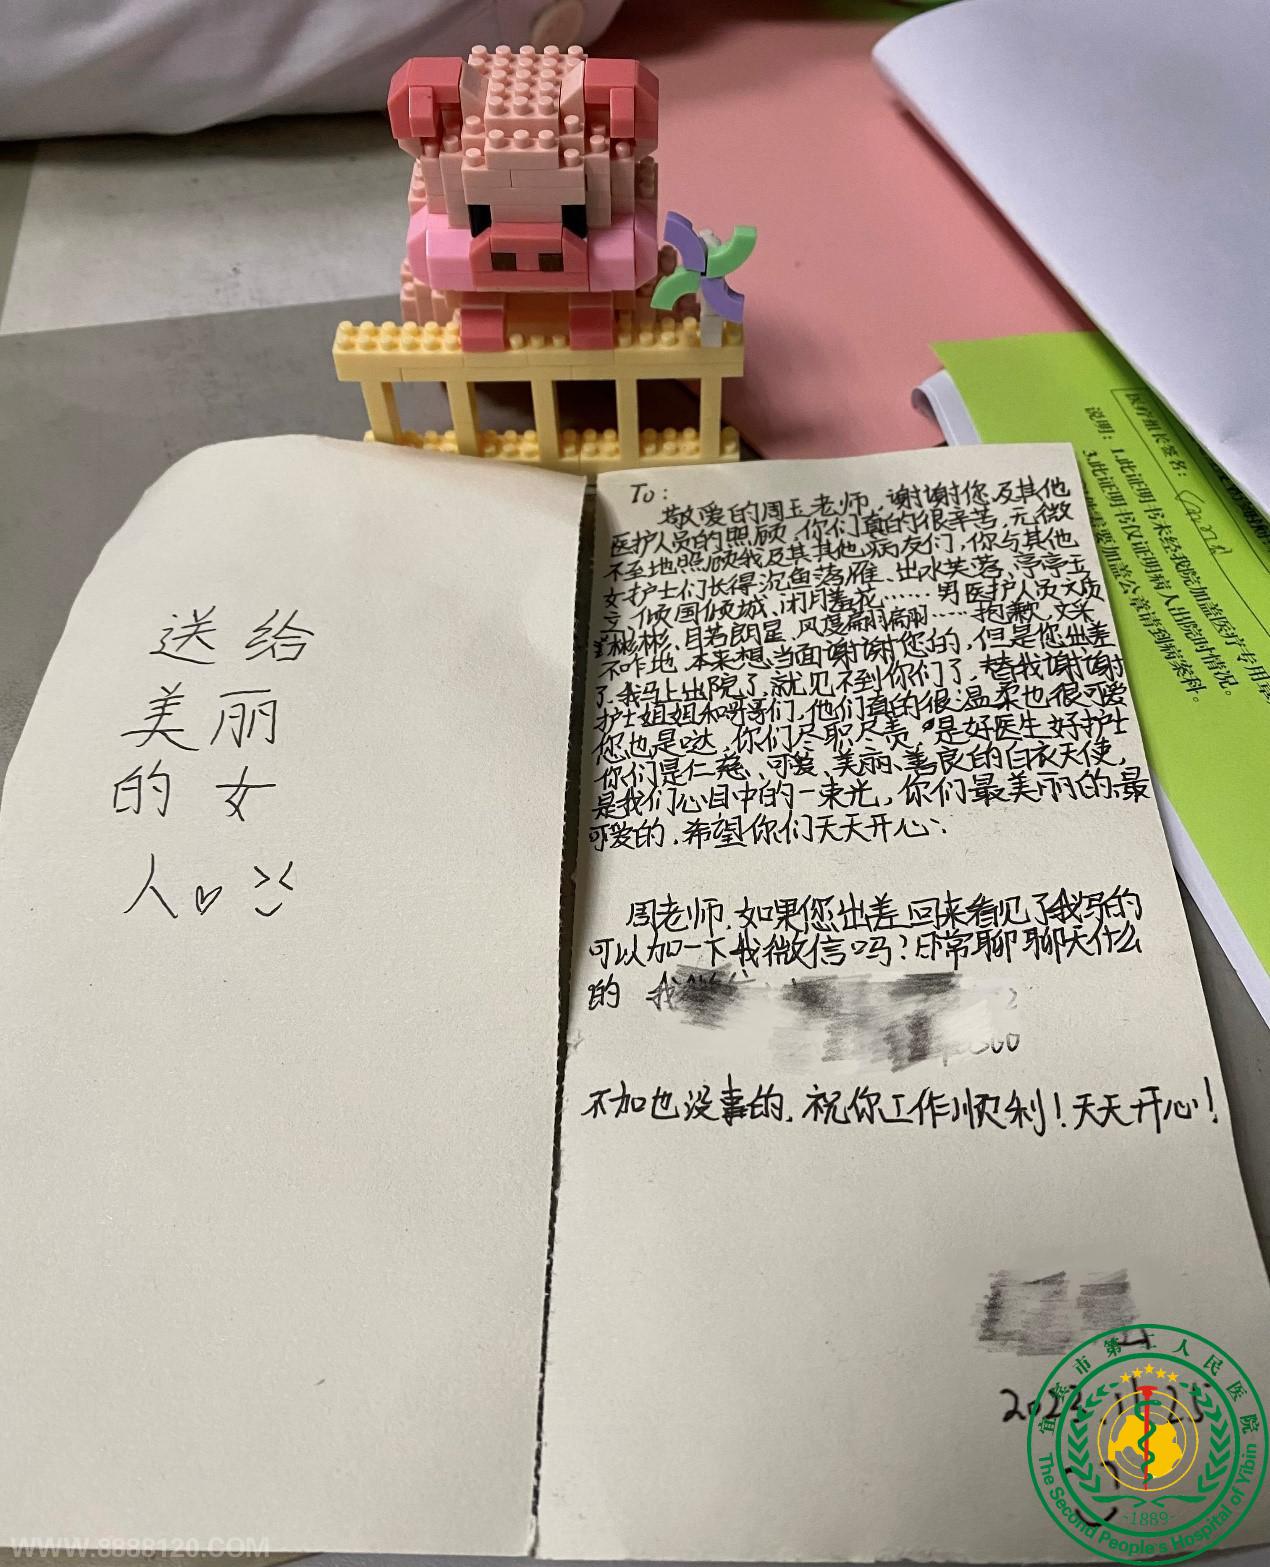 送给
美丽
的女
人
To:
敬爱的周玉老师,谢谢你及其他
医护人员的照顾,你们真的很辛苦,无微
不至地照顾我及其其他病友们,你与其他
女护士们长得沉鱼落雁、出水芙蓉、亭亭玉
立、倾国倾城、闭月羞花……男医护人员文质
彬彬、目若朗星、风度翩翩……抱歉,文采
不咋地,本来想当面谢谢您的,但是您出差
了,我马上出院了,就见不到你们了,替我谢谢
护士姐姐和哥哥们,他们真的很温柔也很可爱
您也是哒,你们尽职尽责,是好医生好护士
你们是仁慈、可爱、美丽、善良的白衣天使,
是我们心目中的一束光,你们最美丽的,最
可爱的,希望你们天天开心
周老师,如果您出差回来看见了我写的
可以加一下我微信吗?日常聊聊天什么
的 我
不加也没事的,祝你工作顺利!天天开心!
2023.11.25
医疗组长签名:
说明:1.此证明书未经我院加盖医疗专用章
2.此证明书仅证明病人出院时情况。
需要加盖公章请到病案科。
宜宾市第二人民医院
The Second People's Hospital of Yibin
-1889-
WWW.8888120.COM